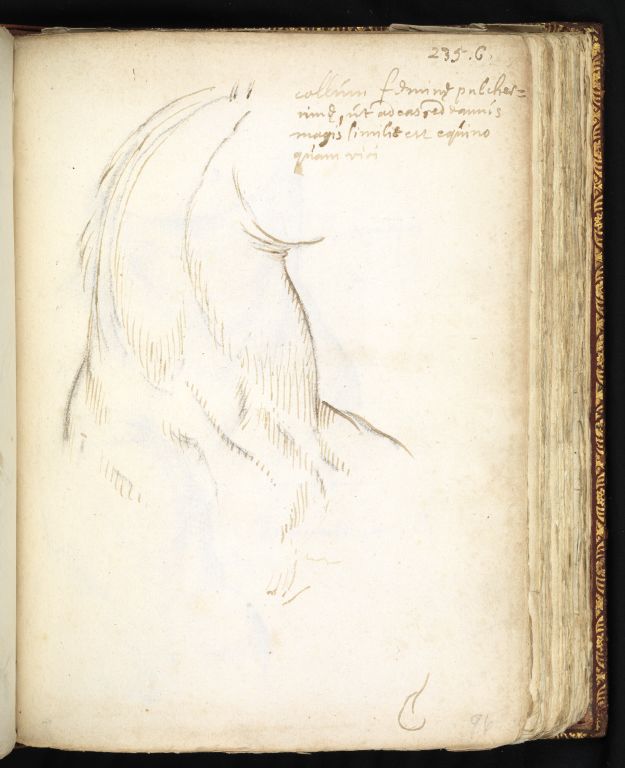 235.6.
collum fęminę pulcher=
rimę, ut adeas
magis simile est equino
quam viri
96